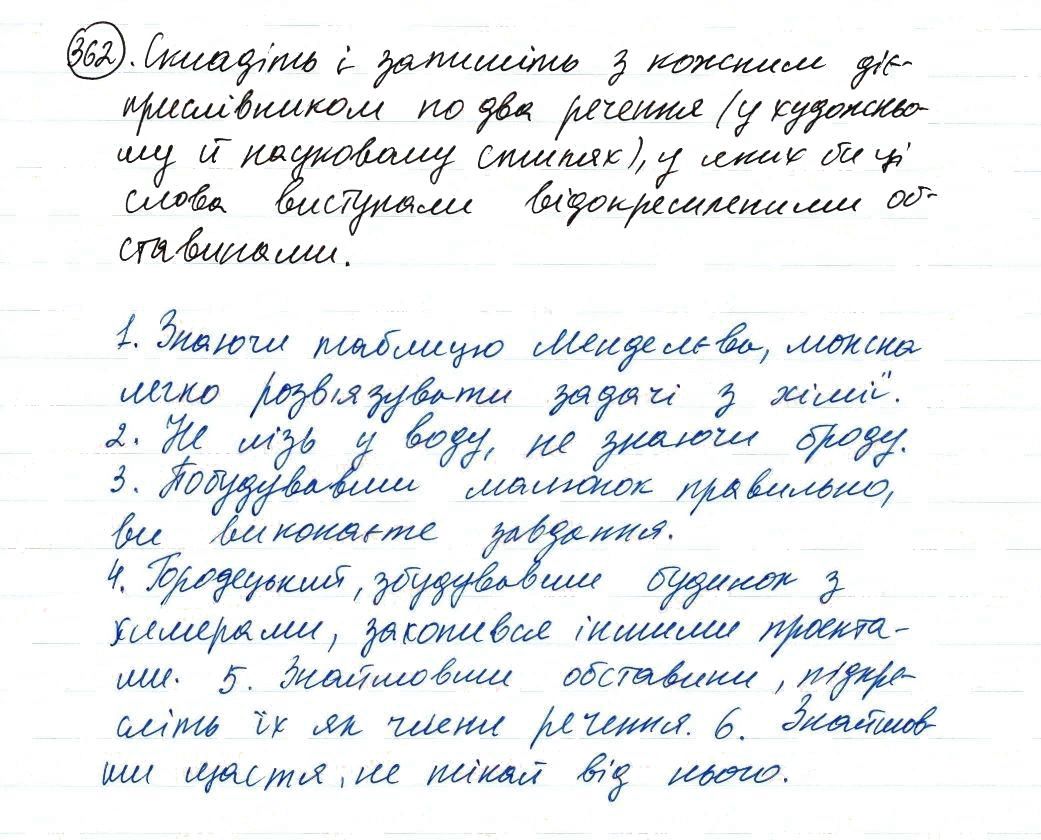 362. Складіть і запишіть з кожним діє-
прислівником по два речення (у художньо-
му й науковому стилях), у яких би ці
слова виступали відокремленими об-
ставинами.
1. Знаючи таблицю Менделєва, можна
легко розв'язувати задачі з хімії.
2. Не лізь у воду, не знаючи броду.
3. Побудувавши малюнок правильно,
ви виконаєте завдання.
4. Городецький, збудувавши будинок з
химерами, захопився іншими проекта-
ми. 5. Знайшовши обставини, підкре-
сліть їх як члени речення. 6. Знайшов
ши щастя, не тікай від нього.